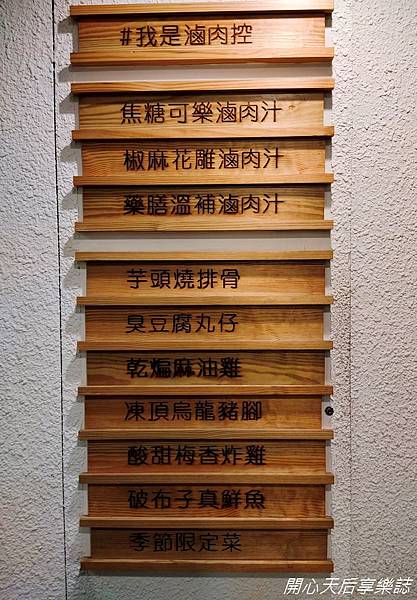 #我是滷肉控
焦糖可樂滷肉汁
椒麻花雕滷肉汁
藥膳溫補滷肉汁
芋頭燒排骨
臭豆腐丸仔
乾煸麻油雞
凍頂烏龍豬腳
酸甜梅香炸雞
破布子真鮮魚
季節限定菜
開心天后享樂誌